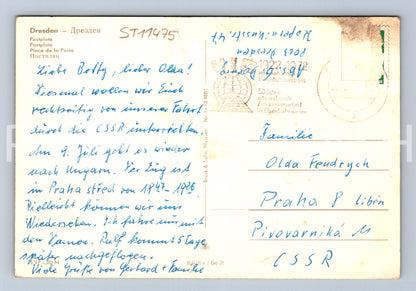 Dresden – Дрезден
Postplatz
Postplatz
Place de la Poste
Постплац
ST11475
Liebe Betty, lieber Olda!
Diesmal wollen wir Euch
rechtzeitig von unserer Fahrt
durch die CSSR unterrichten.
Am 9. Juli geht es wieder
nach Ungarn. Der Zug ist
in Praha střed von
Vielleicht können wir uns
Wiedersehen. Ich fahre nur mit
den Damen. Rolf kommt 5 Tage
später nachgeflogen.
Viele Grüße von Gerhard + Familie
1922-1972
50 Jahre
Familie
Olda Fendrych
Praha 8 Libeň
Pivovarnická 11
CSSR